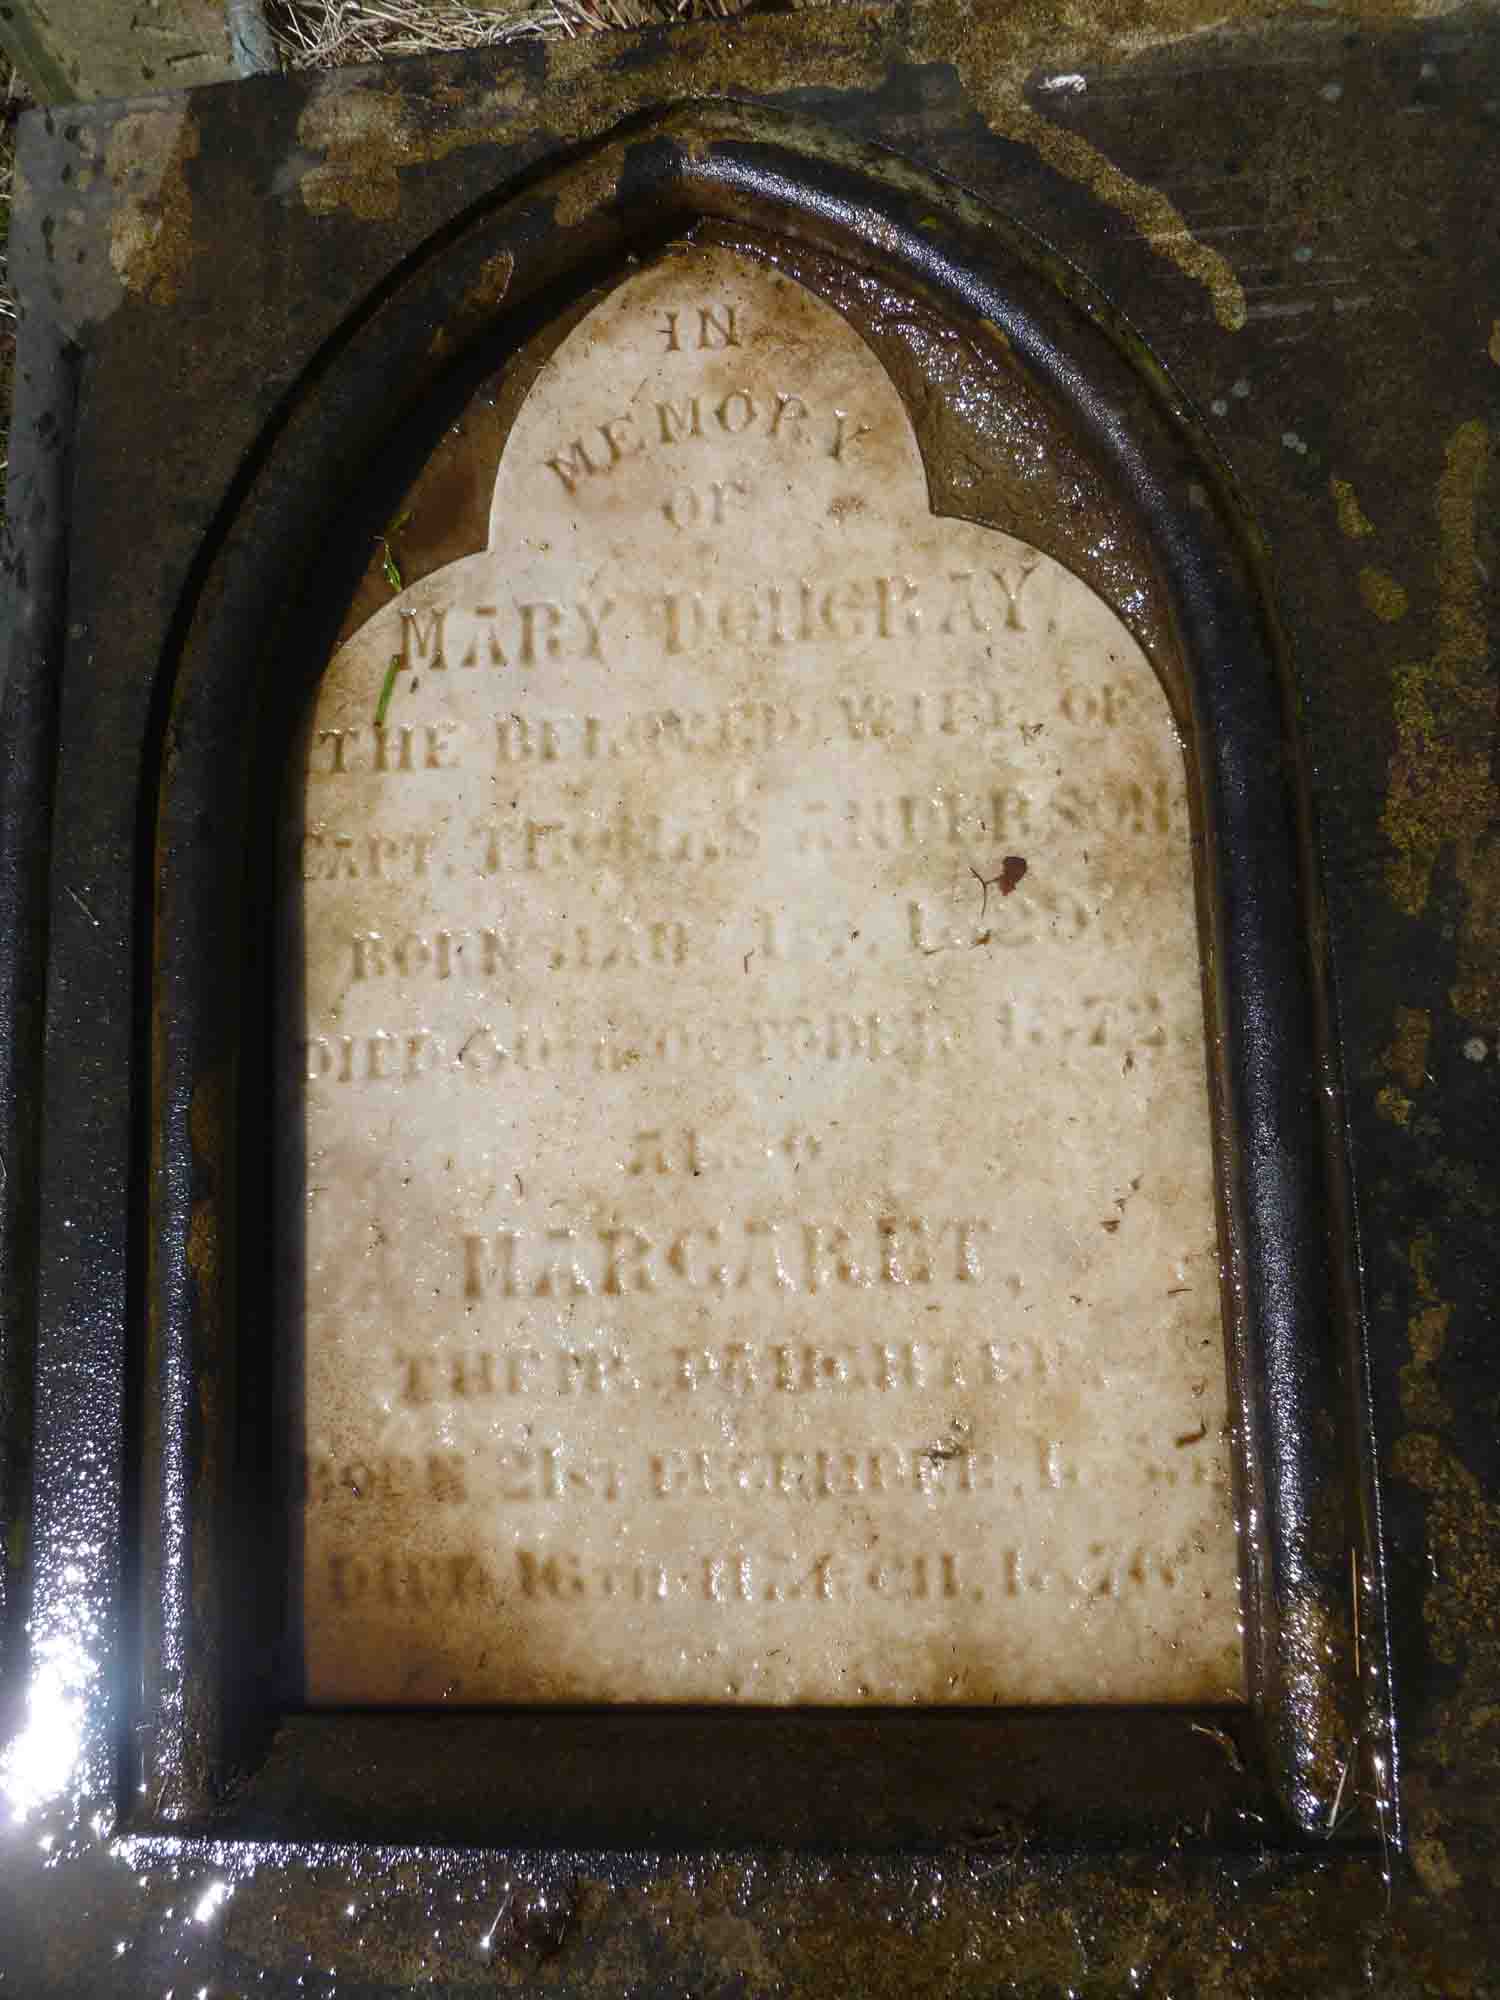 IN
MEMORY
OF
MARY DOUGRAY,
THE BELOVED WIFE OF
CAPT. THOMAS ANDERSON,
BORN MAR. 1829,
DIED OCTOBER, 1872.
ALSO
MARGARET,
THEIR DAUGHTER
BORN 21ST DECEMBER,
DIED 16TH MARCH, 1876